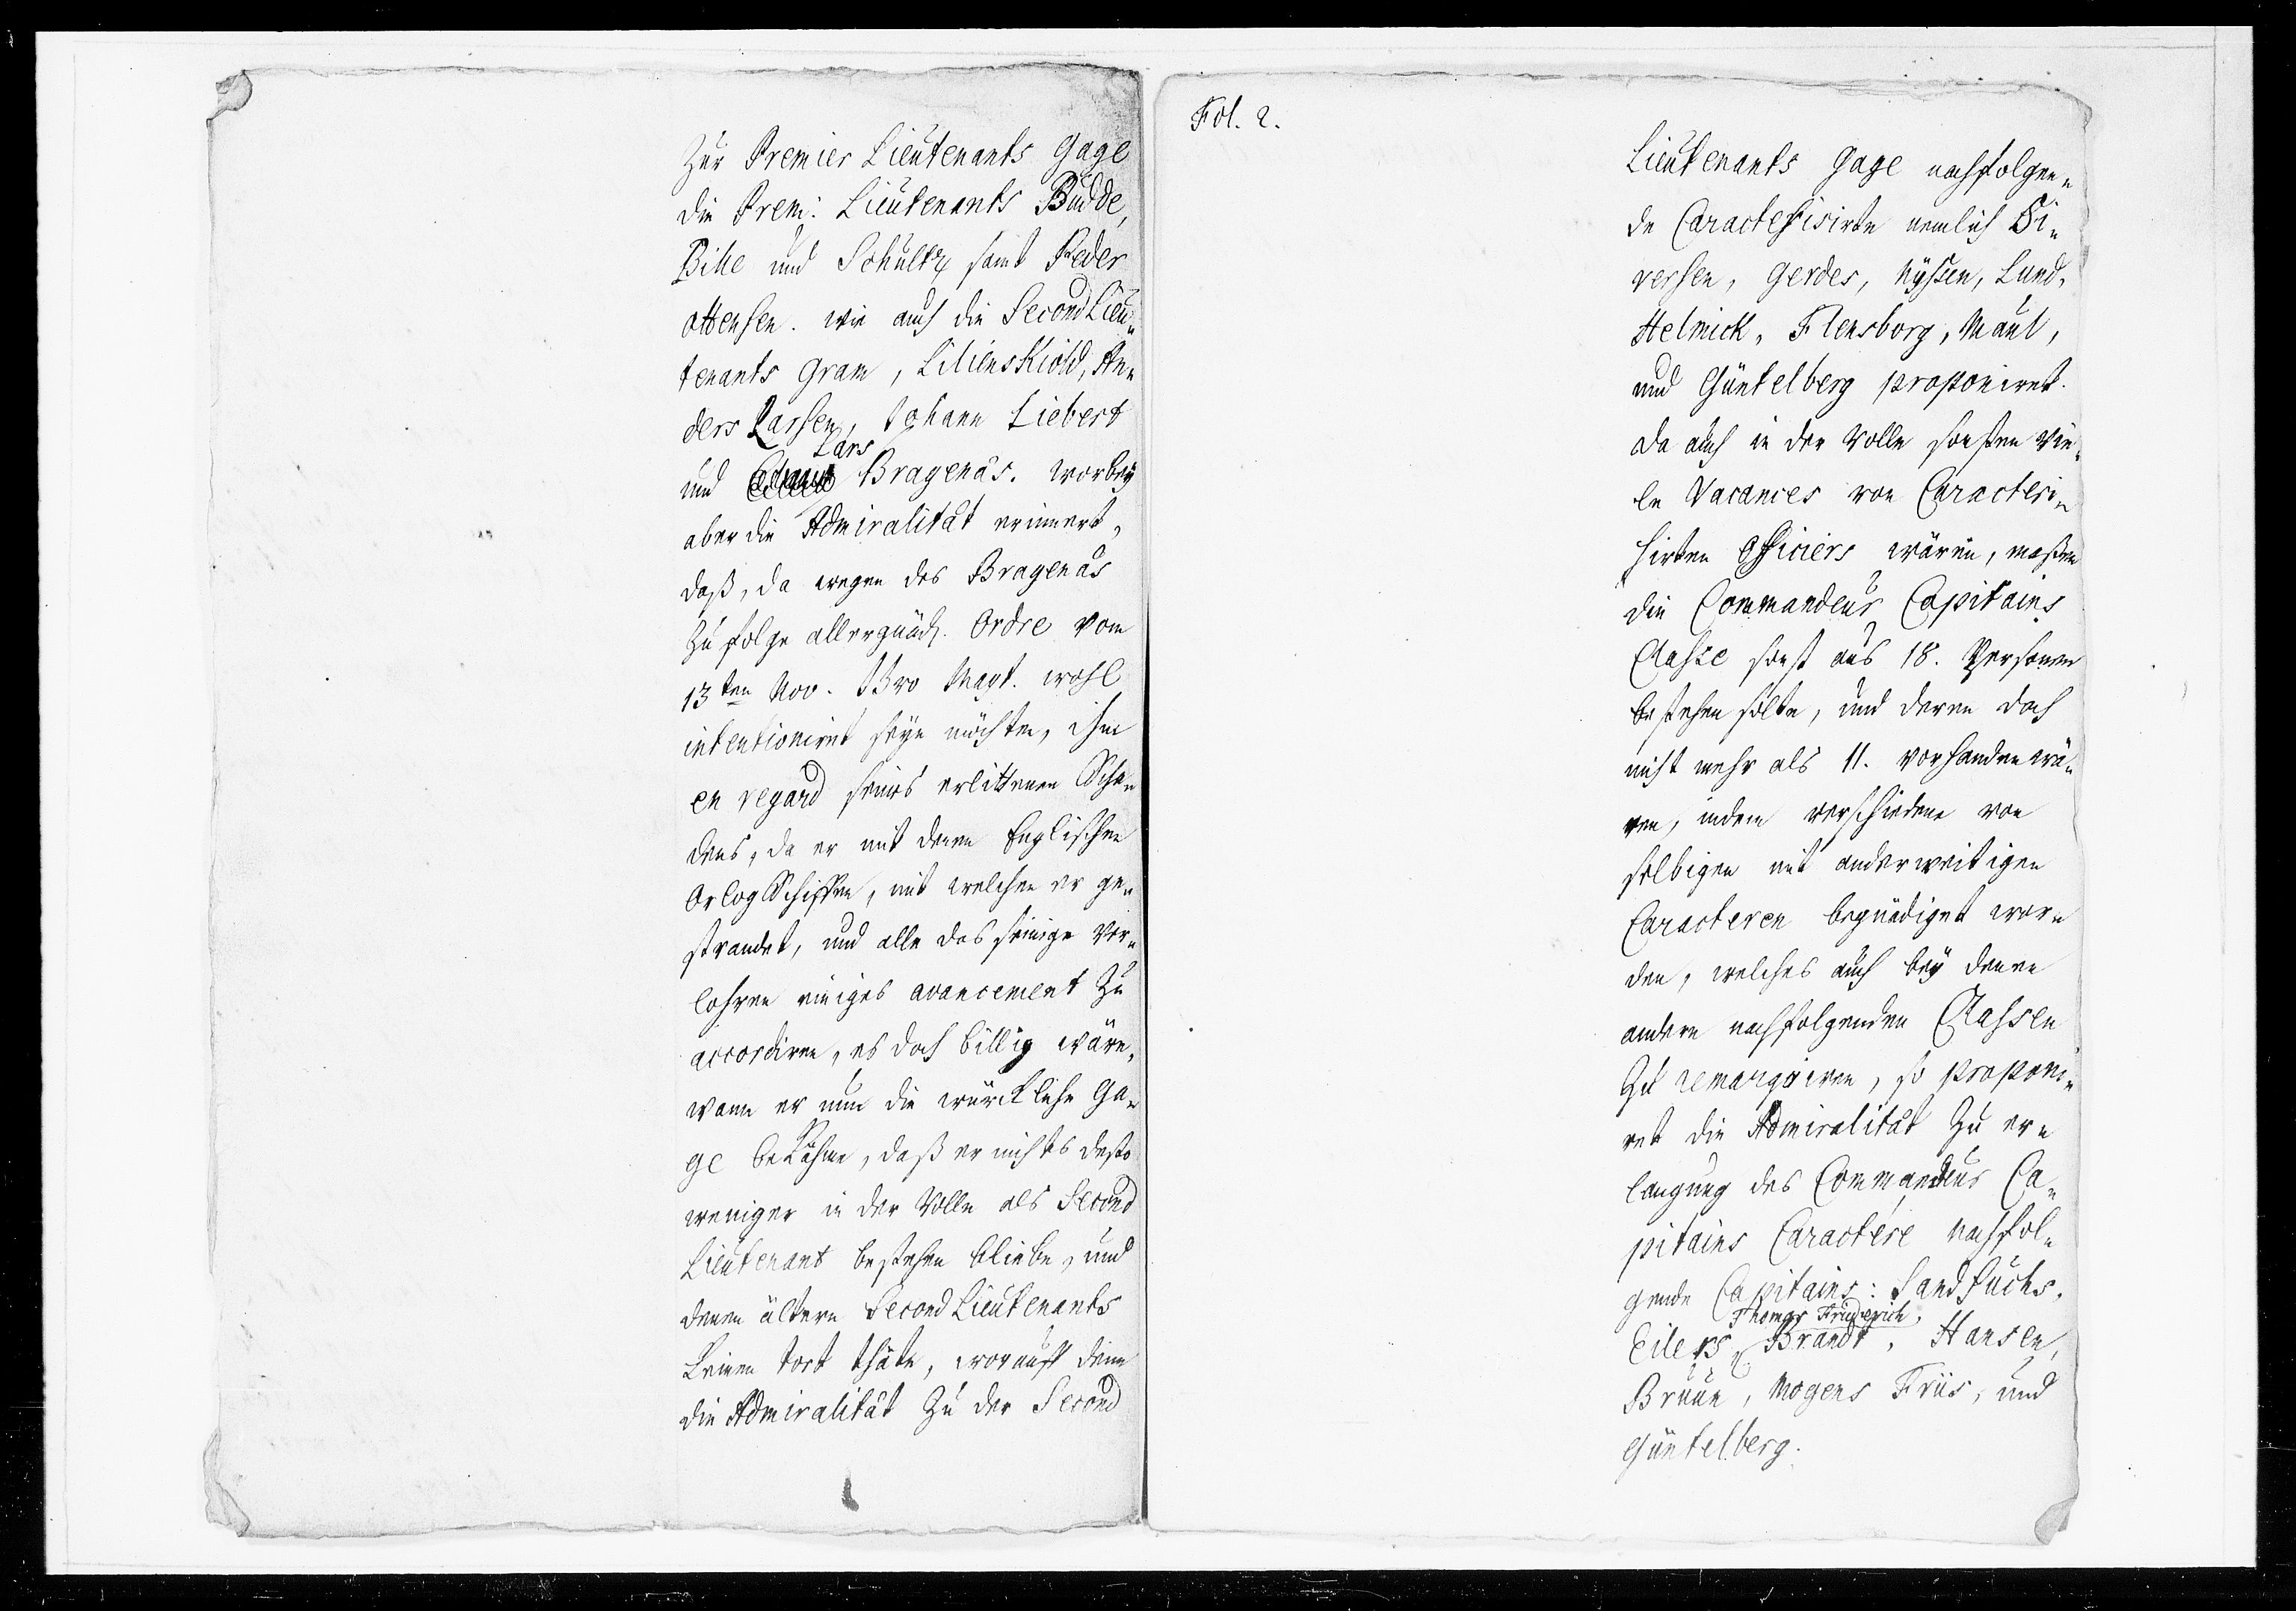 Zur Premier Lieutenants Gage
die Prem: Lieutenants Budde,
Bille und Schultz samt Peder
Ottensen. wie auch die Second Lieu-
tenants Gram, Lilienskiold, An-
ders Lassen, Johann Siebert
Lars
und Bragenås. worbey
aber die Admiralität erinnert,
daß, da wegen des Bragenås
zu folge allergnäd. Ordre vom
13ten Nov. Ihro Mayt. wohl
intentioniret seyn möchten, ihm
en regard seines erlittenen Scha-
dens, da er mit denen Englischen
Orlog Schiffen, mit welchen er ge-
strandet, und alle das seinige ver-
lohren einiges avancement zu
accordiren, es doch billig wäre,
wann er nun die würckliche Ga-
ge bekähme, daß er nichts desto
weniger in der Rolle als Second
Lieutenant bestehen bliebe, und
denen ältern Second Lieutenants
keinen tort thäte, worauff denn
die Admiralität zu der Second
Fol. 2.
Lieutenants Gage nachfolgen-
de Caracterisirte nemlich Si-
versen, Gerdes, Nyssen, Lund,
Helmick, Flensborg, Maul,
und Güntelberg proponiret.
da auch in der Rolle sonsten vie-
le Vacances von Caracteri-
sirten Officiers wären, maßen
die Commandeur Capitains
Classe sonst aus 18. Personen
bestehen solte, und deren doch
nicht mehr als 11. vorhanden wä-
ren, indem verschiedene von
selbigen mit anderweitigen
Caracteren begnädiget wor-
den, welches auch bey denen
andern nachfolgenden Classen
zu remarquiren, so proponi-
ret die Admiralität zu er-
langung des Commandeur Ca-
pitains Caractére nachfol-
gende Capitains: Sandfuchs,
Thomas Friderich
Eilers, Brandt, Hansen,
Bruun, Mogens Friis, und
Güntelberg.